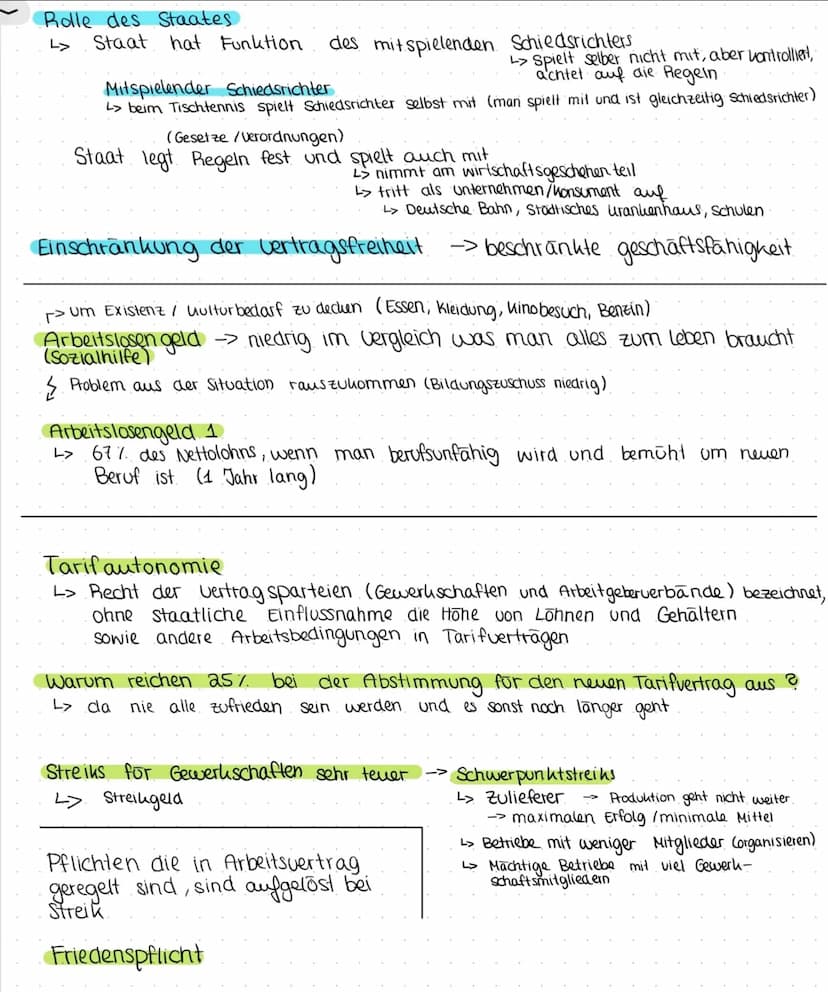 Rolle des Staates
↳ Staat hat Funktion des mitspielenden Schiedsrichters
↳ spielt selber nicht mit, aber kontrolliert,
achtet auf die Regeln
Mitspielender Schiedsrichter
↳ beim Tischtennis spielt Schiedsrichter selbst mit (man spielt mit und ist gleichzeitig Schiedsrichter)
(Gesetze / Verordnungen)
Staat legt Regeln fest und spielt auch mit
↳ nimmt am Wirtschaftsgeschehen teil
↳ tritt als Unternehmen/Konsument auf
↳ Deutsche Bahn, Städtisches Krankenhaus, Schulen
Einschränkung der Vertragsfreiheit -> beschränkte Geschäftsfähigkeit
-> um Existenz / Kulturbedarf zu decken (Essen, Kleidung, Kinobesuch, Benzin)
Arbeitslosengeld -> niedrig im Vergleich was man alles zum Leben braucht
(Sozialhilfe)
↯ Problem aus der Situation rauszukommen (Bildungszuschuss niedrig)
Arbeitslosengeld 1
↳ 67% des Nettolohns, wenn man berufsunfähig wird und bemüht um neuen
Beruf ist (1 Jahr lang)
Tarifautonomie
↳ Recht der Vertragsparteien (Gewerkschaften und Arbeitgeberverbände) bezeichnet,
ohne staatliche Einflussnahme die Höhe von Löhnen und Gehältern
sowie andere Arbeitsbedingungen in Tarifverträgen
Warum reichen 25% bei der Abstimmung für den neuen Tarifvertrag aus?
↳ da nie alle zufrieden sein werden und es sonst noch länger geht
Streiks für Gewerkschaften sehr teuer -> Schwerpunktstreiks
↳ Streikgeld
↳ Zulieferer -> Produktion geht nicht weiter
-> maximalen Erfolg / minimale Mittel
↳ Betriebe mit weniger Mitglieder (organisieren)
↳ Mächtige Betriebe mit viel Gewerk-
schaftsmitgliedern
Pflichten die in Arbeitsvertrag
geregelt sind, sind aufgelöst bei
Streik
Friedenspflicht